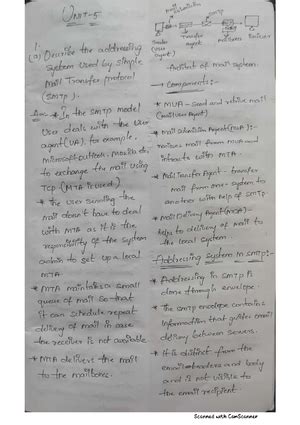 UNIT-5
1.
(a) Describe the addressing
system used by simple
Mail Transfer protocol
(SMTP).
* In the SMTP model
user deals with the user
agent(UA), for example,
microsoft outlook.
to exchange the mail using
TCP (MTA is used)
* the user sending the
mail doesn't have to deal
with MTA as it is the
responsibility of the system
admin to set up a local
MTA.
* MTA maintains a small
queue of mail so that
it can schedule repeat
delivery of mail in case
the receiver is not available
* MTA delivers the mail
to the mailboxes.
SMTP
Transfer
agent
Agent)
of mail system.
Components:-
* MUA - send and retrive mail
(mail user Agent)
* Mail submission Agent(MSA):-
recives mail from MUA and
interacts with MTA.
* Mail Transfer Agent - transfer
mail from one system to
another with help of SMTP.
* Mail Delivery Agent(MDA)-
helps to delivery of mail to
the local system.
Addressing system in SMTP:-
* Addressing in SMTP is
done through envelope.
* The SMTP envelope contains
information that guides email
delivery between servers.
* It is distinct from the
email headers and body
and is not visible to
the email recipient.
Scanned with CamScanner